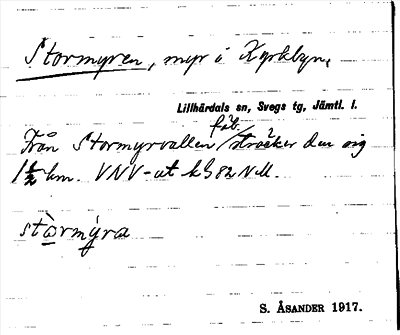 Stormyren, myr i Kyrkbyn.
Lillhärdals sn, Svegs tg, Jämtl. l.
fäb.
Från Stormyrvallen sträcker den sig
1½ km. VNV-ut
stòrmýra
S. ÅSANDER 1917.